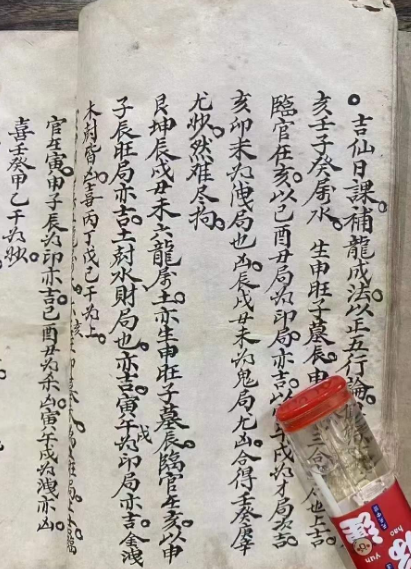 吉仙日課。補龍成法以正五行論。
亥壬子癸屬水。生申旺子墓辰。申 三合 也上吉。
臨官在亥。以巳酉丑局為印局。亦吉。以 午戌為才局。次吉。
亥卯未為洩局也。凶。辰戌丑未為鬼局。尤凶。合得壬癸庚辛
尤妙。然难尽拘。
艮坤辰戌丑未六龍屬土。亦生申旺子墓辰。臨官在亥。以申
子辰旺局亦吉。土尅水財局也。亦吉。寅午戌為印局。亦吉。金洩
木尅皆凶。喜丙丁戊己干為上。
官在寅。申子辰為印亦吉。巳酉丑為杀凶。寅午戌為洩亦凶。
喜壬癸甲乙干為妙。
hao
yun